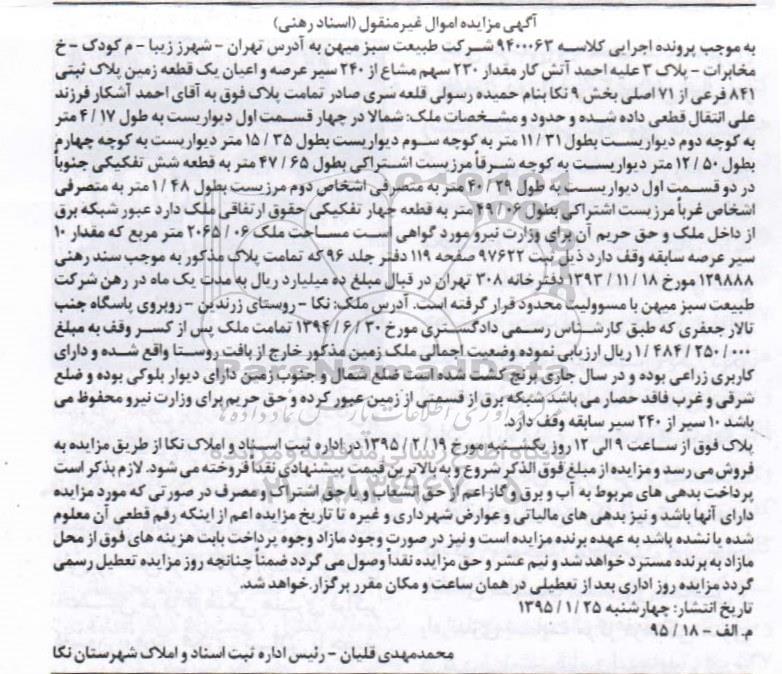 آگهی مزایده اموال غیرمنقول (اسناد رهنی)
به موجب پرونده اجرایی کلاسه ۹۴۰۰۰۶۳ شرکت طبیعت سبز میهن به آدرس تهران - شهرز زیبا - م کودک - خ
مخابرات - پلاک ۳ علیه احمد آتش کار مقدار ۲۳۰ سهم مشاع از ۲۴۰ سیر عرصه و اعیان یک قطعه زمین پلاک ثبتی
۸۴۱ فرعی از ۷۱ اصلی بخش ۹ نکا بنام حمیده رسولی قلعه سری صادر تمامت پلاک فوق به آقای احمد آشکار فرزند
علی انتقال قطعی داده شده و حدود و مشخصات ملک: شمالا در چهار قسمت اول دیواریست به طول ۱۷ / ۴ متر
به کوچه دوم دیواریست بطول ۳۱ / ۱۱ متر به کوچه سوم دیواریست بطول ۳۵ / ۱۵ متر دیواریست به کوچه چهارم
بطول ۵۰ / ۱۲ متر دیواریست به کوچه شرقاً مرزیست اشتراکی بطول ۶۵ / ۴۷ متر به قطعه شش تفکیکی جنوباً
در دو قسمت اول دیواریست به طول ۳۹ / ۴۰ متر به متصرفی اشخاص دوم مرزیست بطول ۴۸ / ۱ متر به متصرفی
اشخاص غرباً مرزیست اشتراکی بطول ۶۶ / ۴۹ متر به قطعه چهار تفکیکی حقوق ارتفاقی ملک دارد عبور شبکه برق
از داخل ملک و حق حریم آن برای وزارت نیرو مورد گواهی است مساحت ملک ۰۶ / ۲۰۶۵ متر مربع که مقدار ۱۰
سیر عرصه سابقه وقف دارد ذیل ثبت ۹۷۶۲۲ صفحه ۱۱۹ دفتر جلد ۹۶ که تمامت پلاک مذکور به موجب سند رهنی
۱۲۹۸۸۸ مورخ ۱۸ / ۱۱ / ۱۳۹۳ دفترخانه ۳۰۸ تهران در قبال مبلغ ده میلیارد ریال به مدت یک ماه در رهن شرکت
طبیعت سبز میهن با مسوولیت محدود قرار گرفته است. آدرس ملک: نکا - روستای زرندین - روبروی پاسگاه جنب
تالار جعفری که طبق کارشناس رسمی دادگستری مورخ ۳۰ / ۶ / ۱۳۹۴ تمامت ملک پس از کسر وقف به مبلغ
۱/۴۸۴/۲۵۰/۰۰۰ ریال ارزیابی نموده وضعیت اجمالی ملک زمین مذکور خارج از بافت روستا واقع شده و دارای
کاربری زراعی بوده و در سال جاری برنج کشت شده است ضلع شمال و جنوب زمین دارای دیوار بلوکی بوده و ضلع
شرقی و غرب فاقد حصار می باشد شبکه برق از قسمتی از زمین عبور کرده و حق حریم برای وزارت نیرو محفوظ می
باشد ۱۰ سیر از ۲۴۰ سیر سابقه وقف دارد.
پلاک فوق از ساعت ۹ الی ۱۲ روز یکشنبه مورخ ۱۹ / ۲ / ۱۳۹۵ در اداره ثبت اسناد و املاک نکا از طریق مزایده به
فروش می رسد و مزایده از مبلغ فوق الذکر شروع و به بالاترین قیمت پیشنهادی نقداً فروخته می شود. لازم بذکر است
پرداخت بدهی های مربوط به آب و برق و گاز اعم از حق انشعاب و یا حق اشتراک و مصرف در صورتی که مورد مزایده
دارای آنها باشد و نیز بدهی های مالیاتی و عوارض شهرداری و غیره تا تاریخ مزایده اعم از اینکه رقم قطعی آن معلوم
شده یا نشده باشد به عهده برنده مزایده است و نیز در صورت وجود مازاد وجوه پرداخت بابت هزینه های فوق از محل
مازاد به برنده مسترد خواهد شد و نیم عشر و حق مزایده نقداً وصول می گردد ضمناً چنانچه روز مزایده تعطیل رسمی
گردد مزایده روز اداری بعد از تعطیلی در همان ساعت و مکان مقرر برگزار خواهد شد.
تاریخ انتشار: چهارشنبه ۲۵ / ۱ / ۱۳۹۵
م. الف - ۱۸ / ۹۵
محمدمهدی قلیان - رئیس اداره ثبت اسناد و املاک شهرستان نکا
ParsNamadData